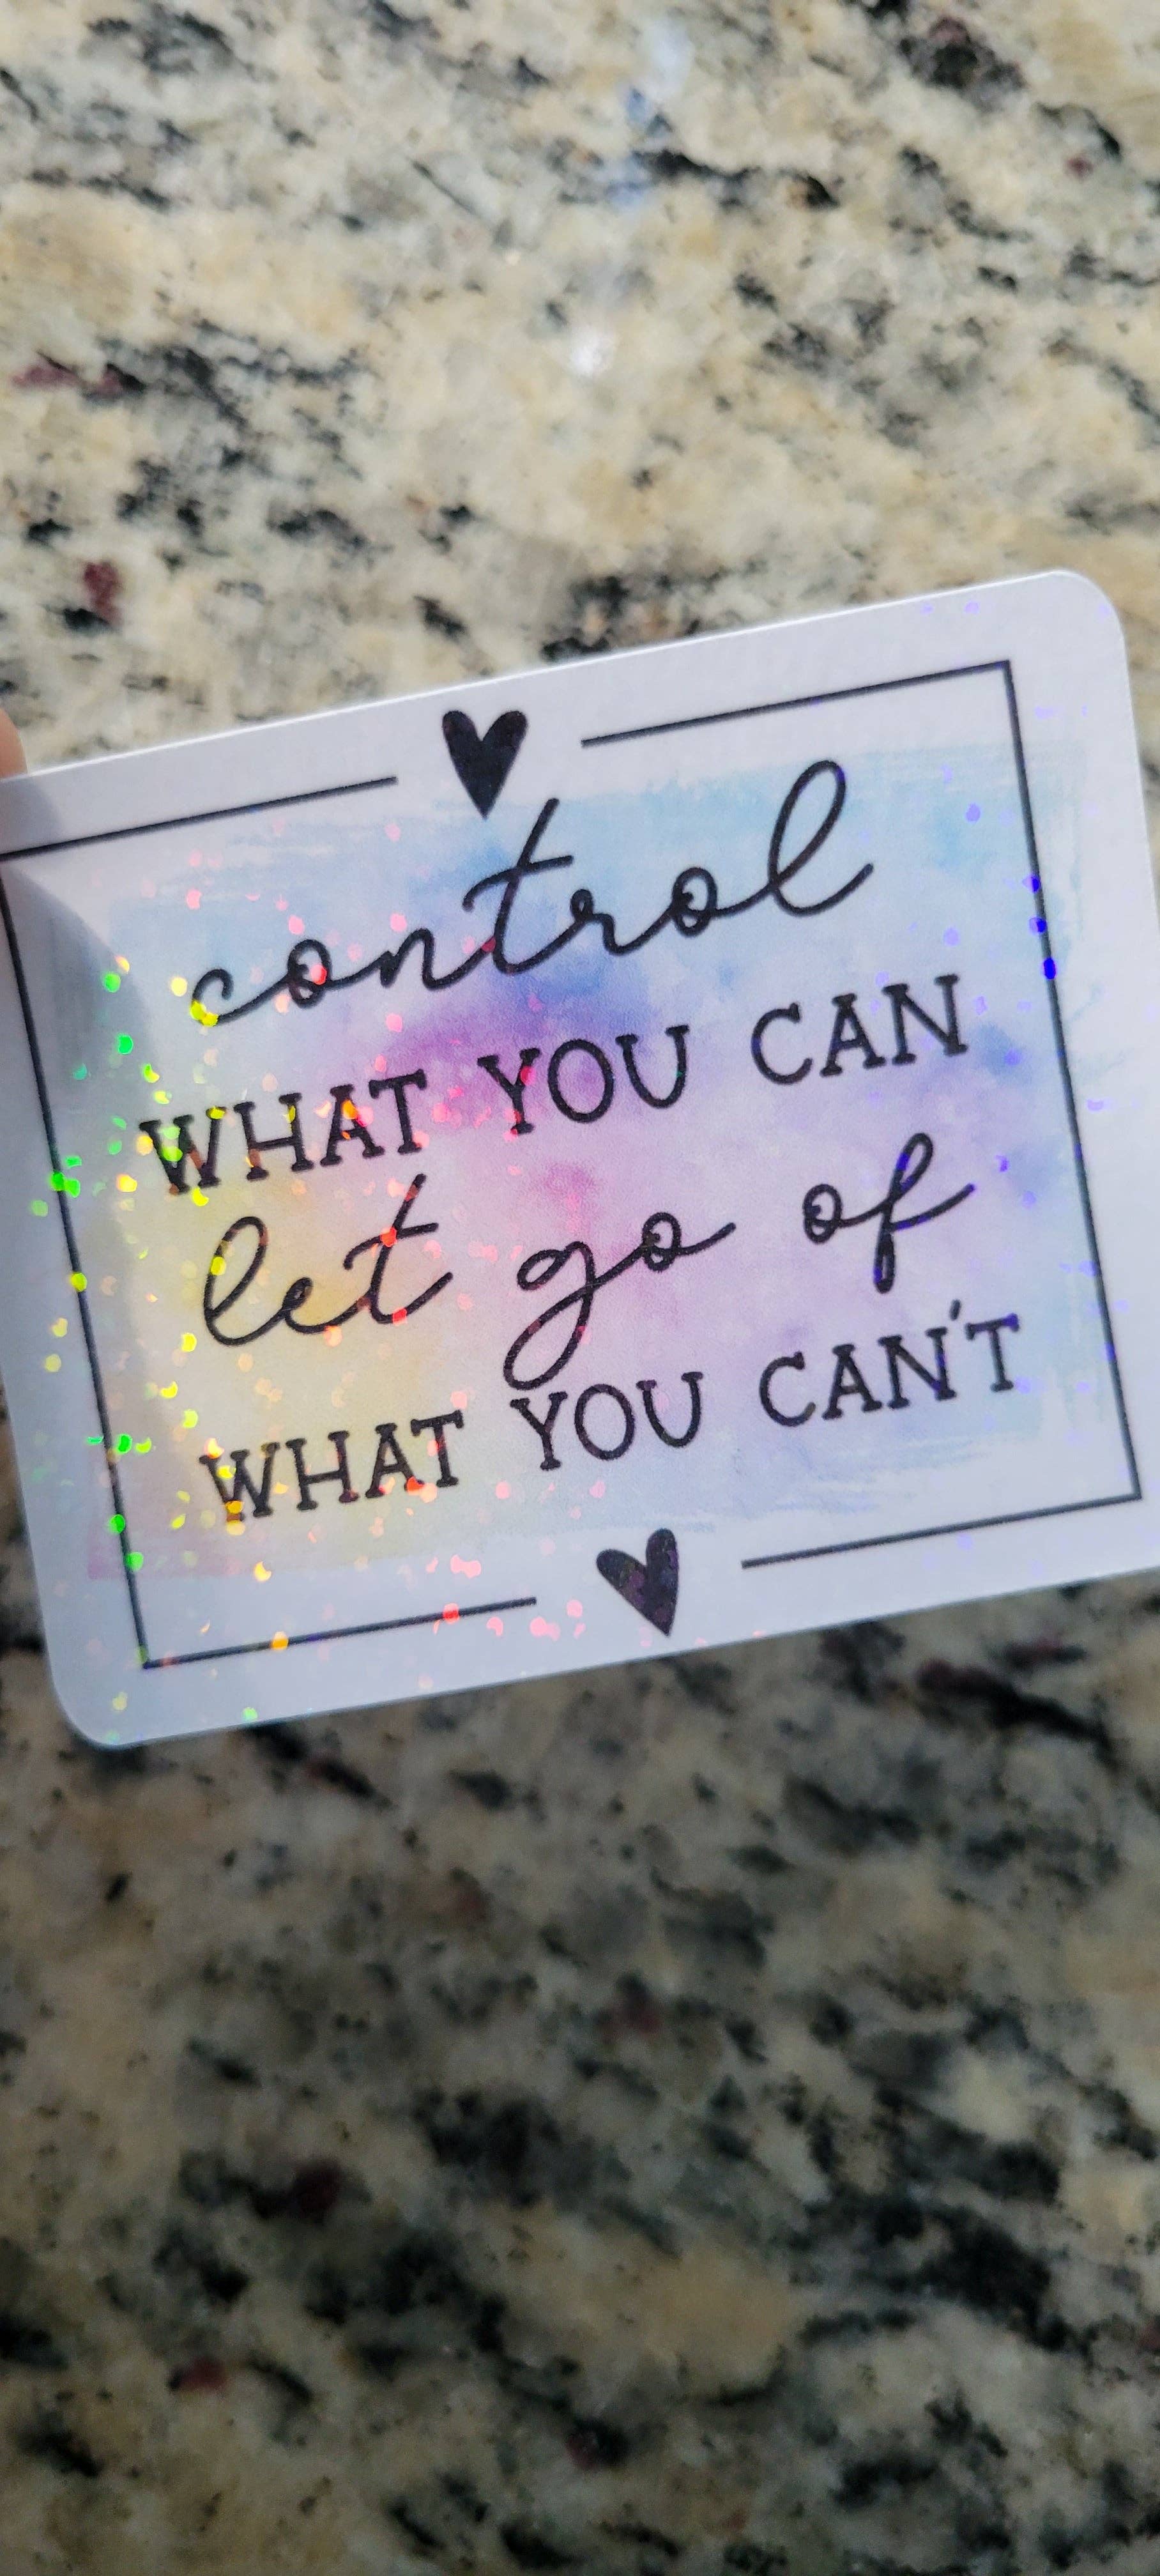 control
WHAT YOU CAN
let go of
WHAT YOU CAN'T